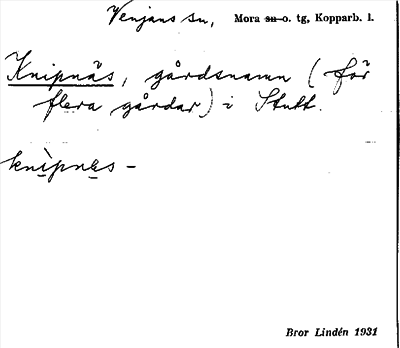 Venjans sn, Mora sn o. tg, Kopparb. l.
Knipnäs, gårdsnamn (för
flera gårdar) i Stutt.
knìpnes –
Bror Lindén 1931